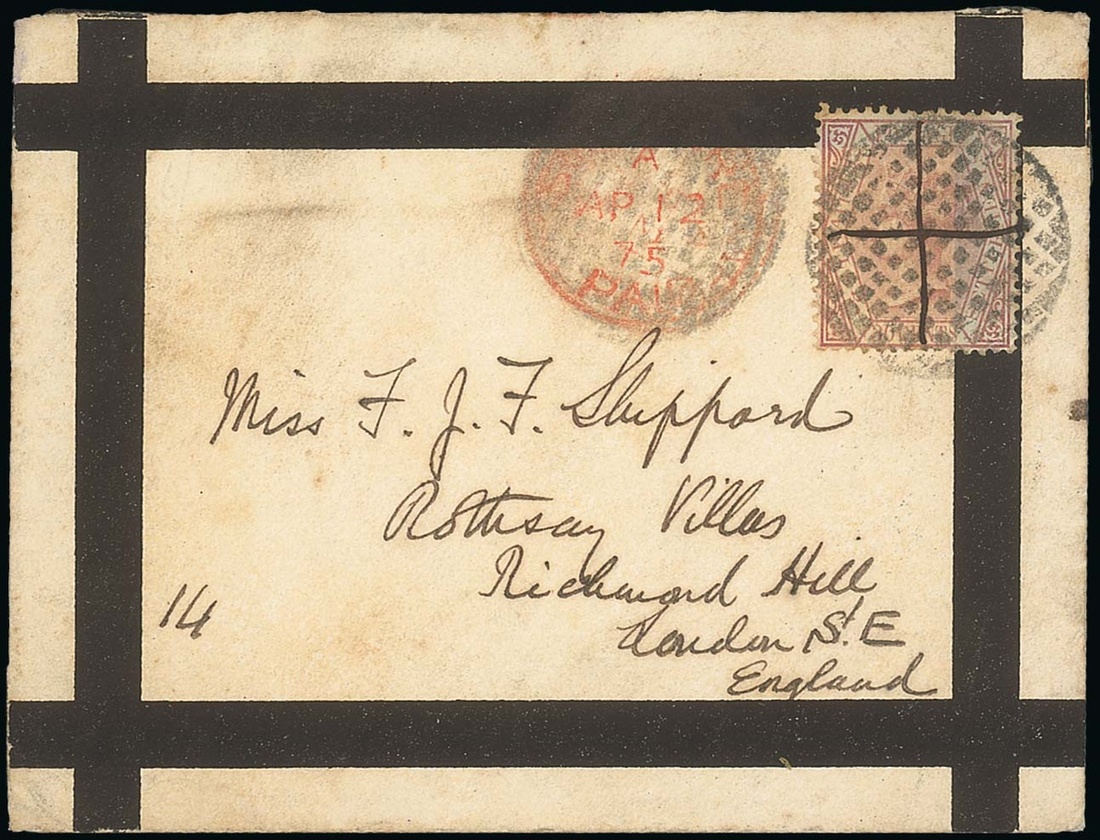 A
AP 12
75
PAID
Miss F. J. F. Shippard
Rothsay Villas
Richmond Hill
London, S.E
England
14